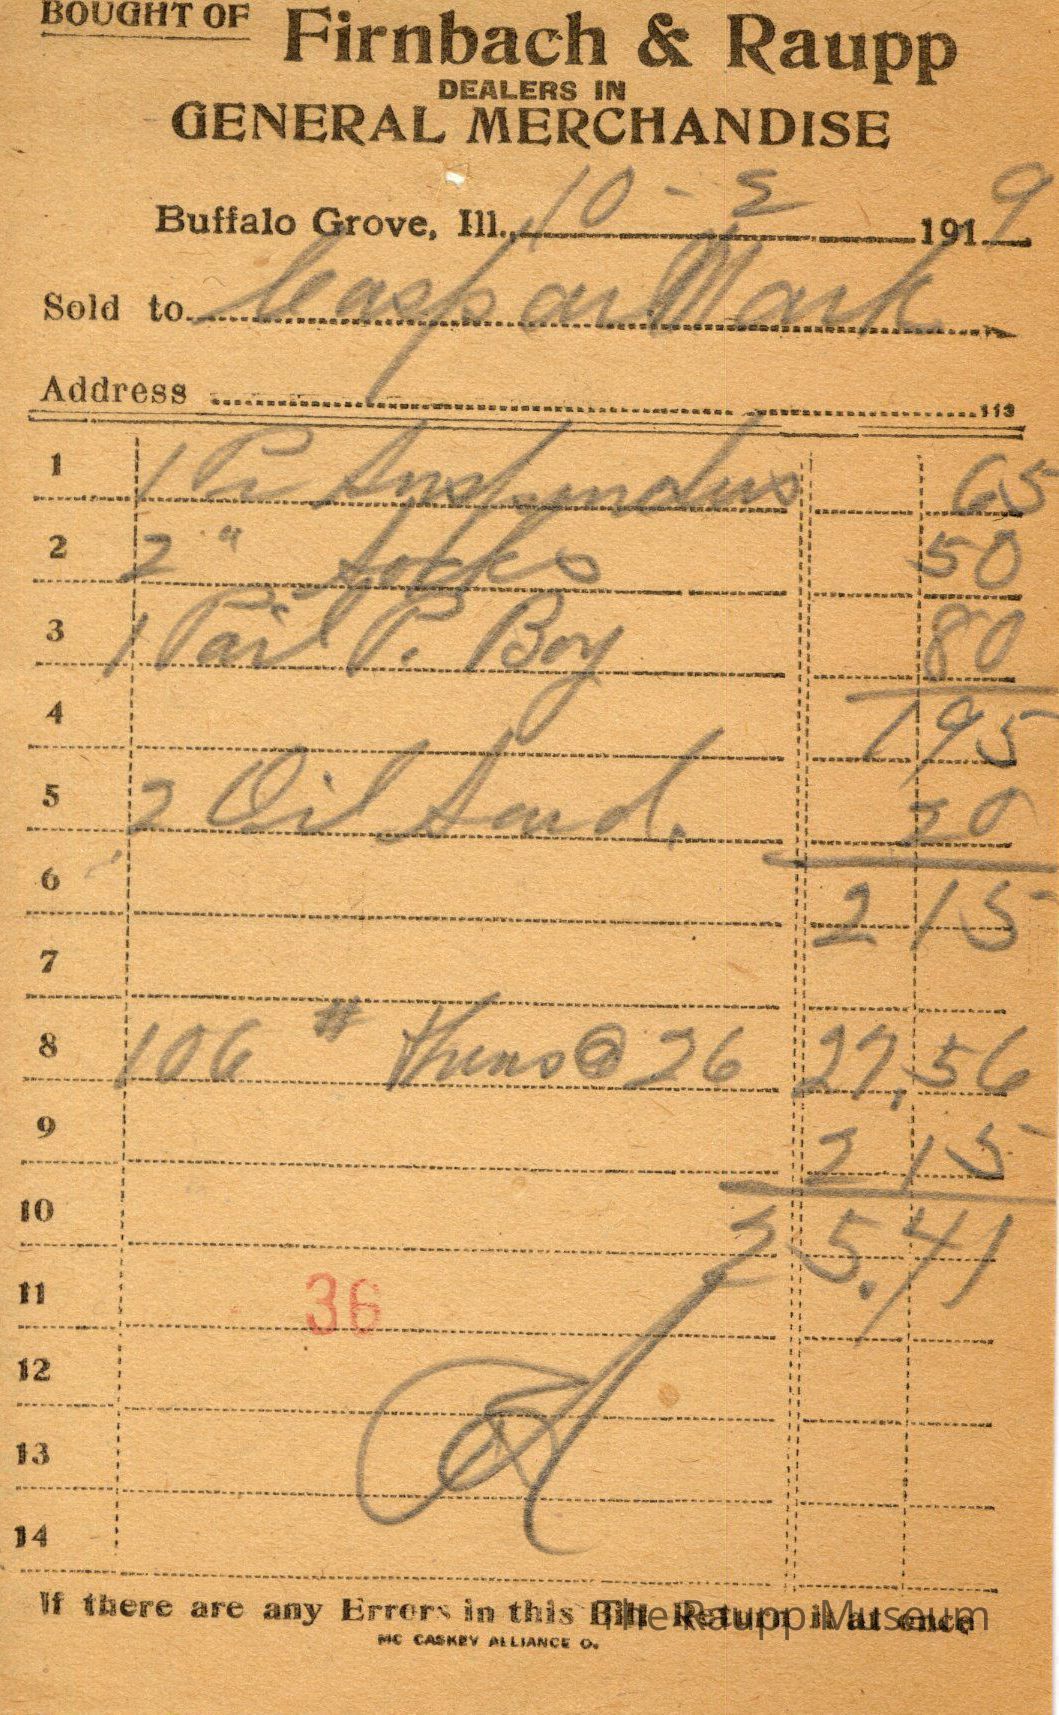 BOUGHT OF
Firnbach & Raupp
DEALERS IN
GENERAL MERCHANDISE
Buffalo Grove, Ill., 10-2 1919
Sold to Caspar Mark
Address
113
1 1 Pr Suspenders 65
2 2 " Socks 50
3 1 Pail P. Boy 80
4 195
5 2 Oil Sard. 20
6 2 15
7
8 106 # Hens @ 26 27.56
9 2 15
10 25.41
11 36
12
13
14
If there are any Errors in this Bill Return it at once
The Raupp Museum
MC CASKEY ALLIANCE O.